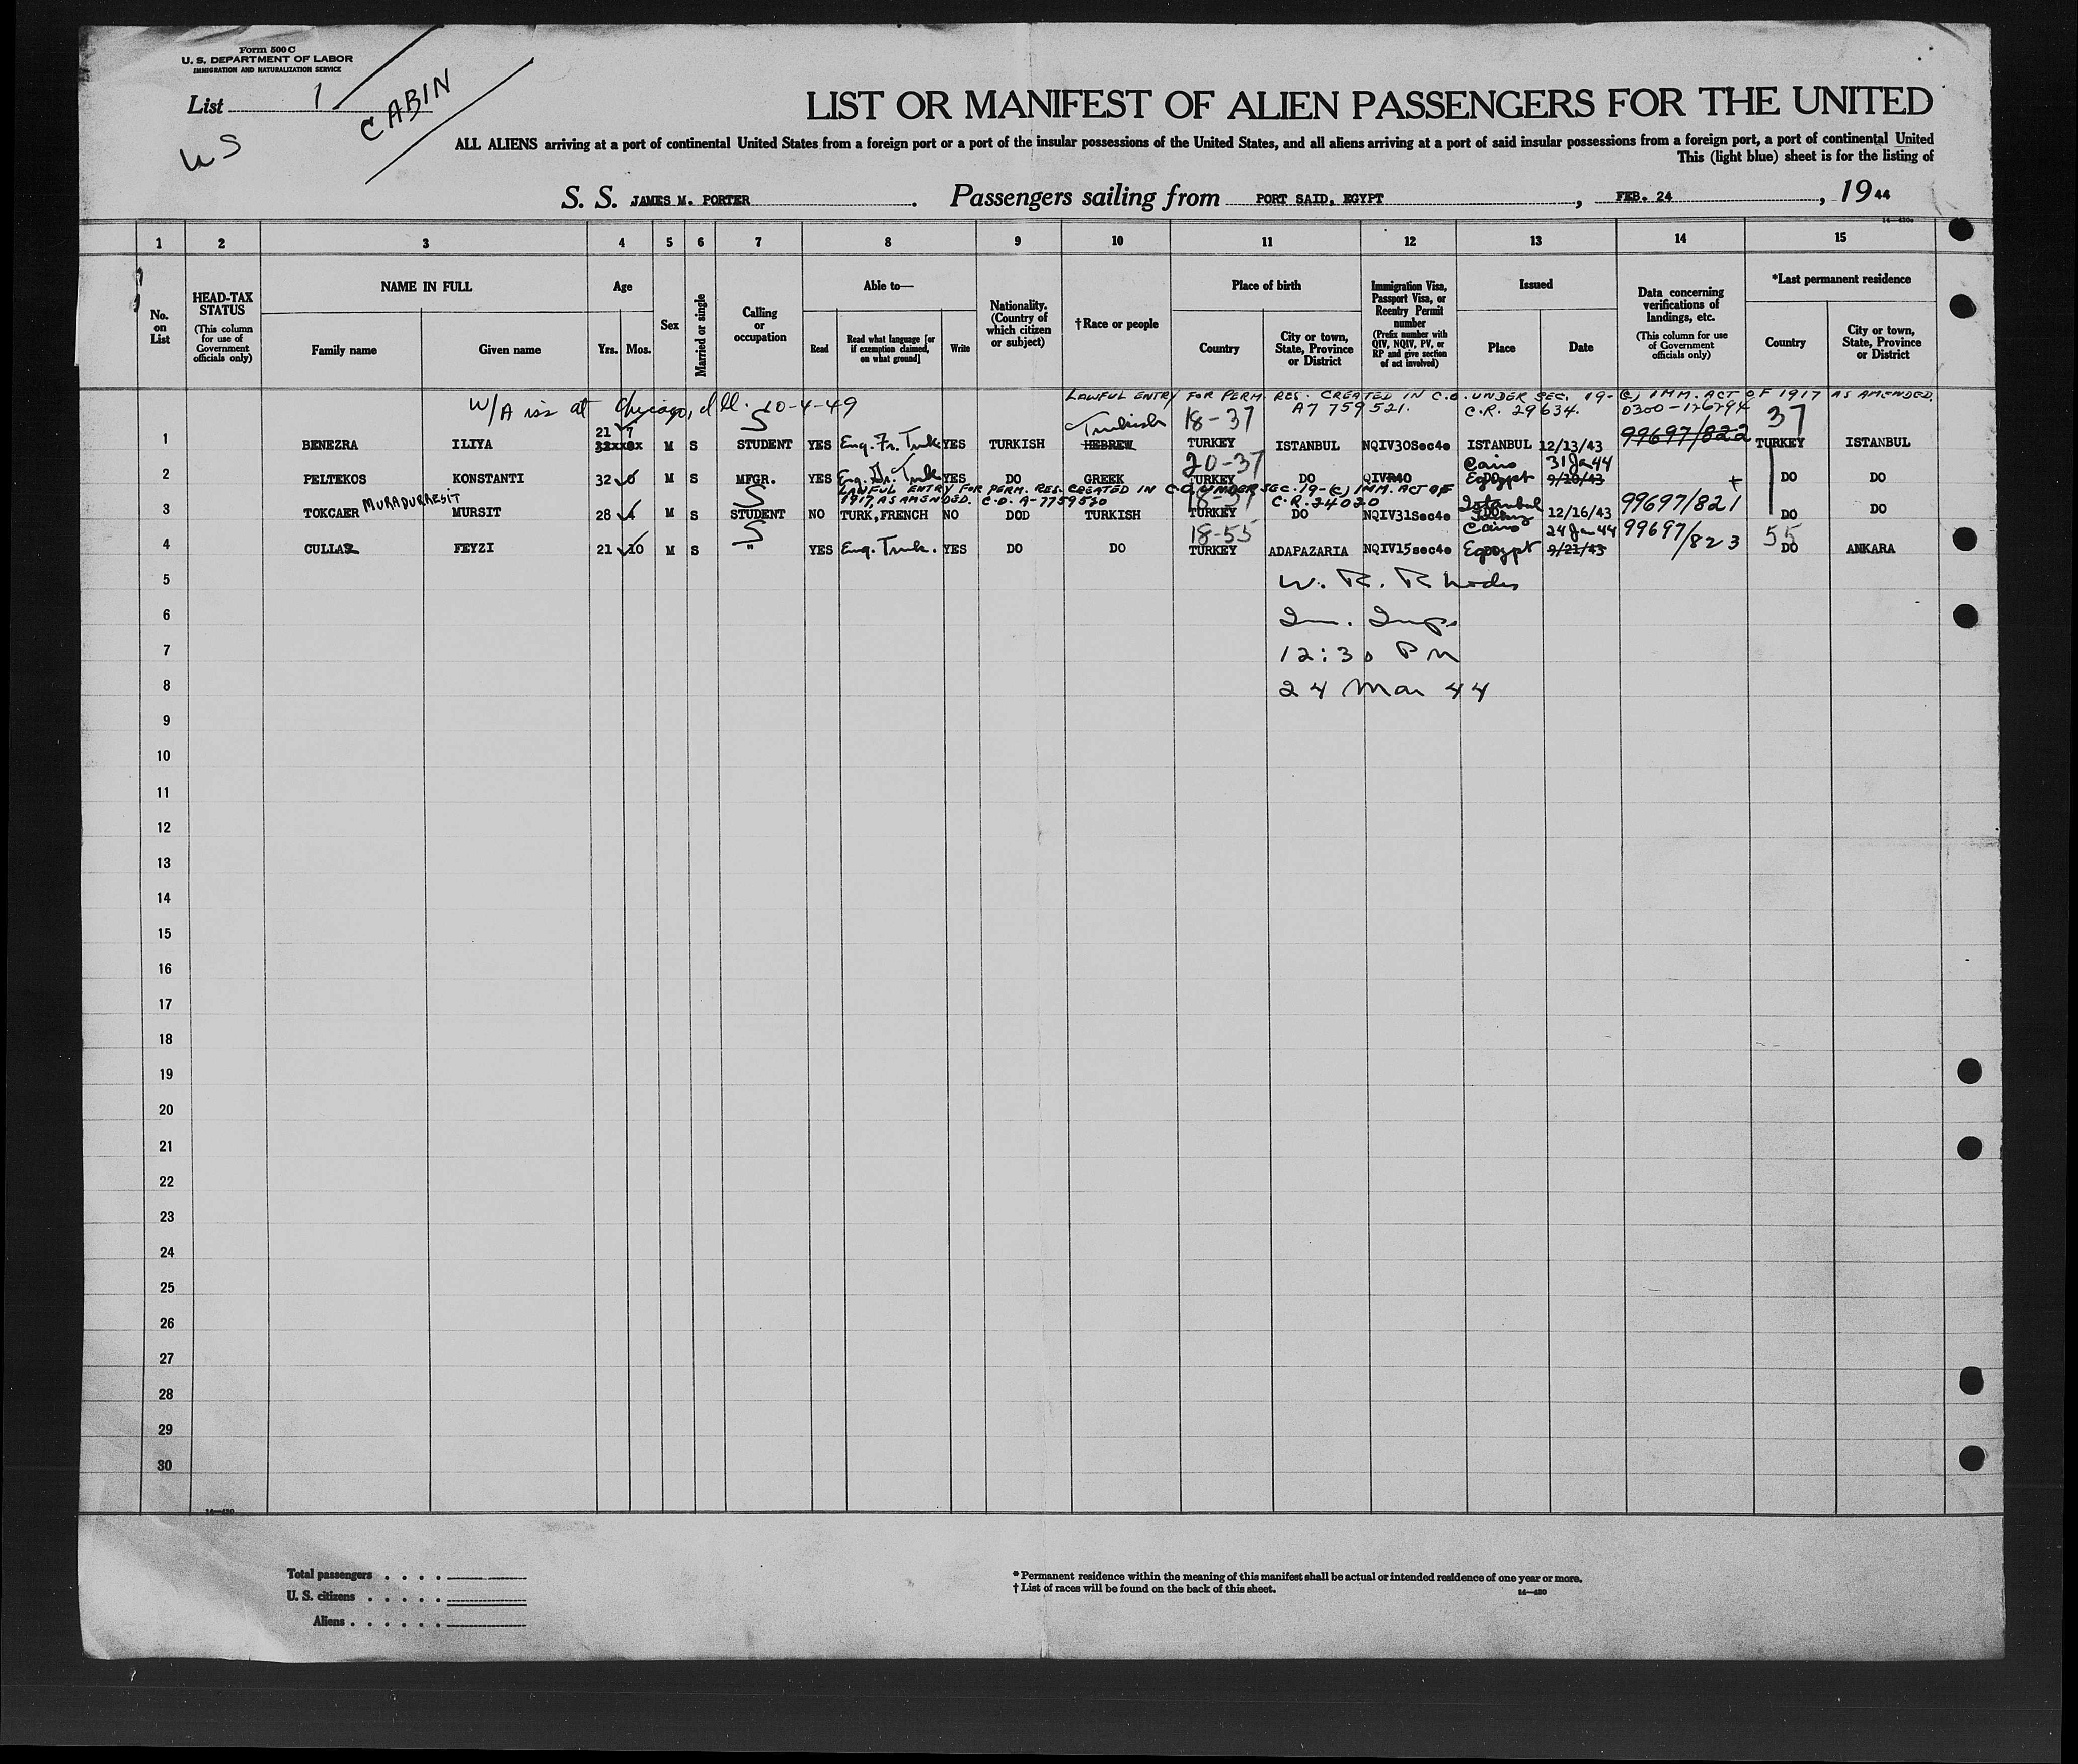 Form 500 C
U. S. DEPARTMENT OF LABOR
IMMIGRATION AND NATURALIZATION SERVICE
List 1
CABIN
US
LIST OR MANIFEST OF ALIEN PASSENGERS FOR THE UNITED
ALL ALIENS arriving at a port of continental United States from a foreign port or a port of the insular possessions of the United States, and all aliens arriving at a port of said insular possessions from a foreign port, a port of continental United
This (light blue) sheet is for the listing of
S. S. JAMES M. PORTER. Passengers sailing from PORT SAID, EGYPT, FEB. 24, 1944
14—420c
1 2 3 4 5 6 7 8 9 10 11 12 13 14 15
No. on List
HEAD-TAX STATUS
(This column for use of Government officials only)
NAME IN FULL
Family name
Given name
Age
Yrs. Mos.
Sex
Married or single
Calling or occupation
Able to—
Read
Read what language [or if exemption claimed, on what ground]
Write
Nationality. (Country of which citizen or subject)
†Race or people
Place of birth
Country
City or town, State, Province or District
Immigration Visa, Passport Visa, or Reentry Permit number
(Prefix number with QIV, NQIV, PV, or RP and give section of act involved)
Issued
Place
Date
Data concerning verifications of landings, etc.
(This column for use of Government officials only)
*Last permanent residence
Country
City or town, State, Province or District
LAWFUL ENTRY FOR PERM. RES. CREATED IN C.O. UNDER SEC. 19-(C) IMM. ACT OF 1917 AS AMENDED.
W/A iss at Chicago, Ill. 10-4-49 A7 759521. C.R. 29634. 0300-126794
S Turkish 18-37 37
21 7
1 BENEZRA ILIYA M S STUDENT YES Eng. Fr. Turk YES TURKISH HEBREW TURKEY ISTANBUL NQIV30Sec4e ISTANBUL 12/13/43 99697/822 TURKEY ISTANBUL
20-37 Cairo 31 Ja 44
2 PELTEKOS KONSTANTI 32 M S MFGR. YES YES DO GREEK TURKEY DO Egypt 9/20/43 DO DO
LAWFUL ENTRY FOR PERM. RES. CREATED IN C.O. UNDER SEC. 19-(C) IMM. ACT OF
1917, AS AMENDED. C.O. A-7759520 C.R. 24020
S MURADURRESIT 18-37 Istanbul
3 TOKCAER MURSIT 28 4 M S STUDENT NO TURK, FRENCH NO DOD TURKISH TURKEY DO NQIV31Sec4e Turkey 12/16/43 99697/821 DO DO
S 18-55 Cairo 24 Jan 44 55
4 CULLAS FEYZI 21 10 M S " YES Eng. Turk. YES DO DO TURKEY ADAPAZARIA NQIV15sec4e Egypt 9/21/43 99697/823 DO ANKARA
5 W. R. Rhodes
6 Im. Insp.
7 12:30 PM
8 24 Mar 44
9
10
11
12
13
14
15
16
17
18
19
20
21
22
23
24
25
26
27
28
29
30
14—420
Total passengers . . . .
U. S. citizens . . . . .
Aliens . . . . . .
* Permanent residence within the meaning of this manifest shall be actual or intended residence of one year or more.
† List of races will be found on the back of this sheet.
14—420